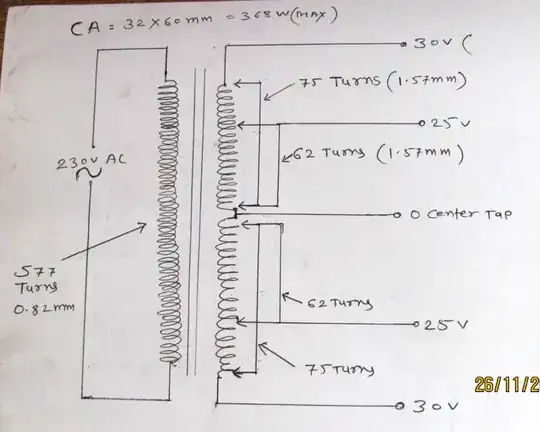 CA = 32 X 60 mm = 368 W (MAX)
30V (
75 Turns (1.57mm)
25V
62 Turns (1.57mm)
230V AC
0 Center Tap
577
Turns
0.82mm
62 Turns
25V
75 Turns
26/11/2
30V